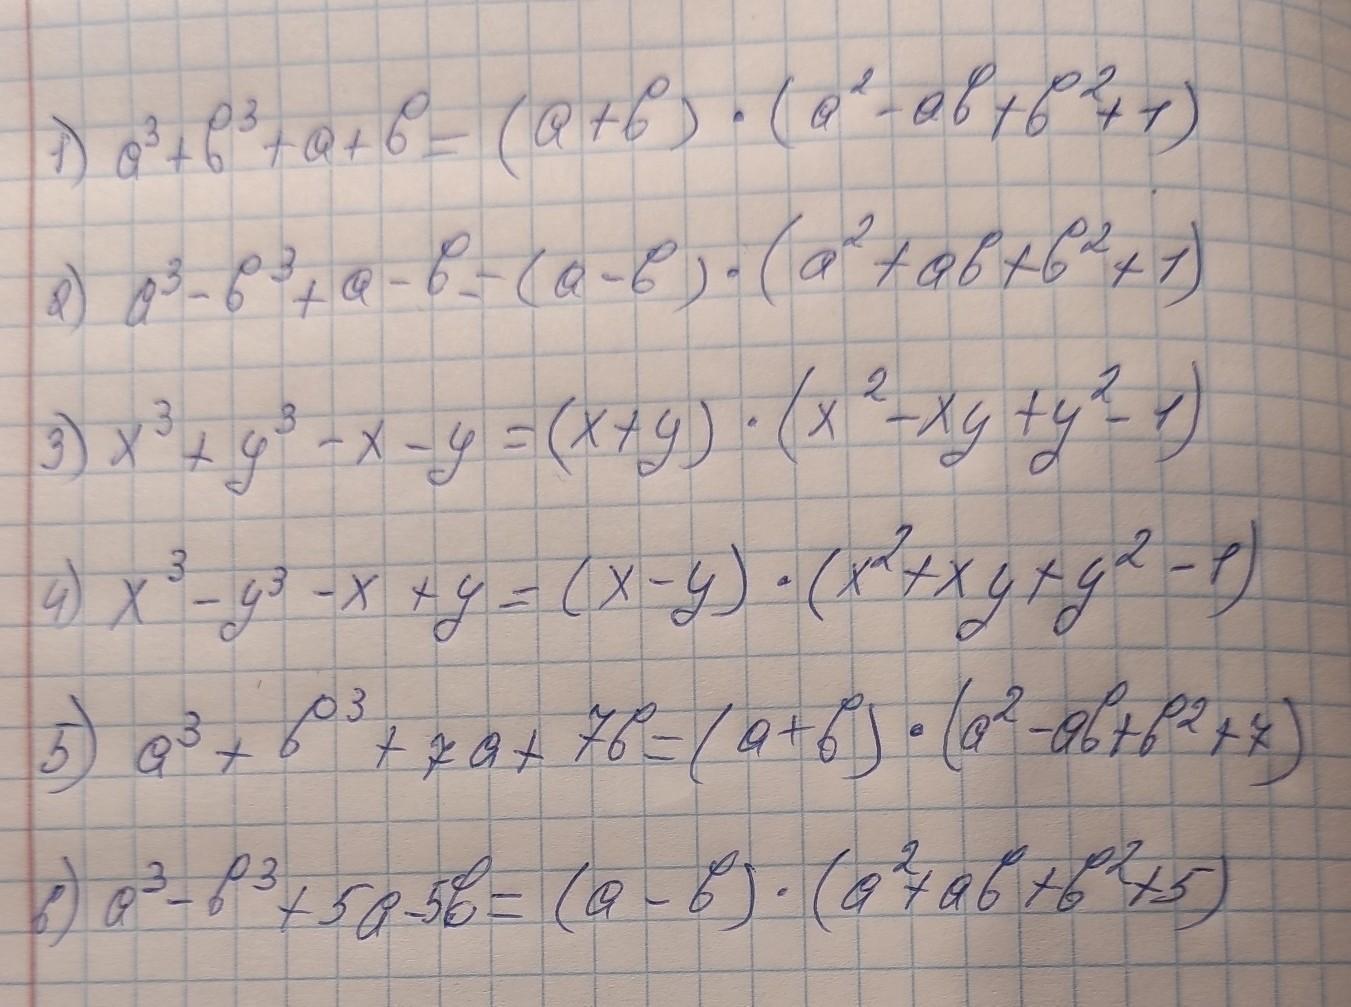 1) a³+b³+a+b=(a+b)·(a²-ab+b²+1)
2) a³-b³+a-b=(a-b)·(a²+ab+b²+1)
3) x³+y³-x-y=(x+y)·(x²-xy+y²-1)
4) x³-y³-x+y=(x-y)·(x²+xy+y²-1)
5) a³+b³+7a+7b=(a+b)·(a²-ab+b²+7)
6) a³-b³+5a-5b=(a-b)·(a²+ab+b²+5)